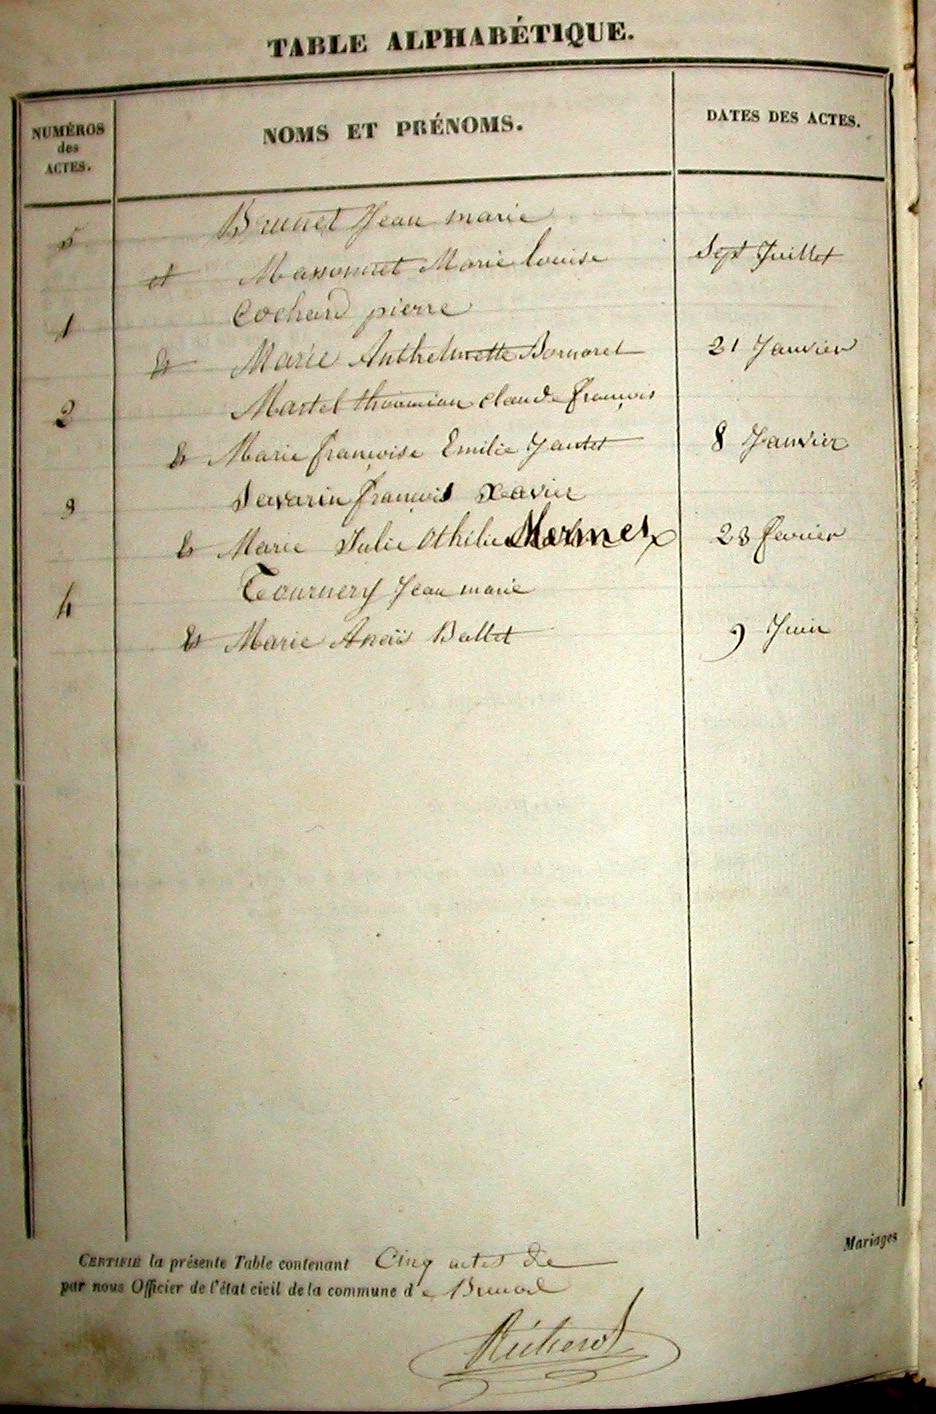 TABLE ALPHABÉTIQUE.
NUMÉROS
des
ACTES.
NOMS ET PRÉNOMS.
DATES DES ACTES.
5 Brunet Jean marie
et Massonnet Marie louise Sept Juillet
1 Cochard pierre
& Marie Anthelmette Bornarel 21 Janvier
2 Martel claude françois
& Marie françoise Emilie Jantet 8 Janvier
3 Savarin françois Xavier
& Marie Julie Othilie Mermet 23 fevrier
4 Tournery Jean marie
& Marie Anaïs Ballet 9 Juin
Mariages
CERTIFIÉ la présente Table contenant Cinq actes de
par nous Officier de l'état civil de la commune d'e